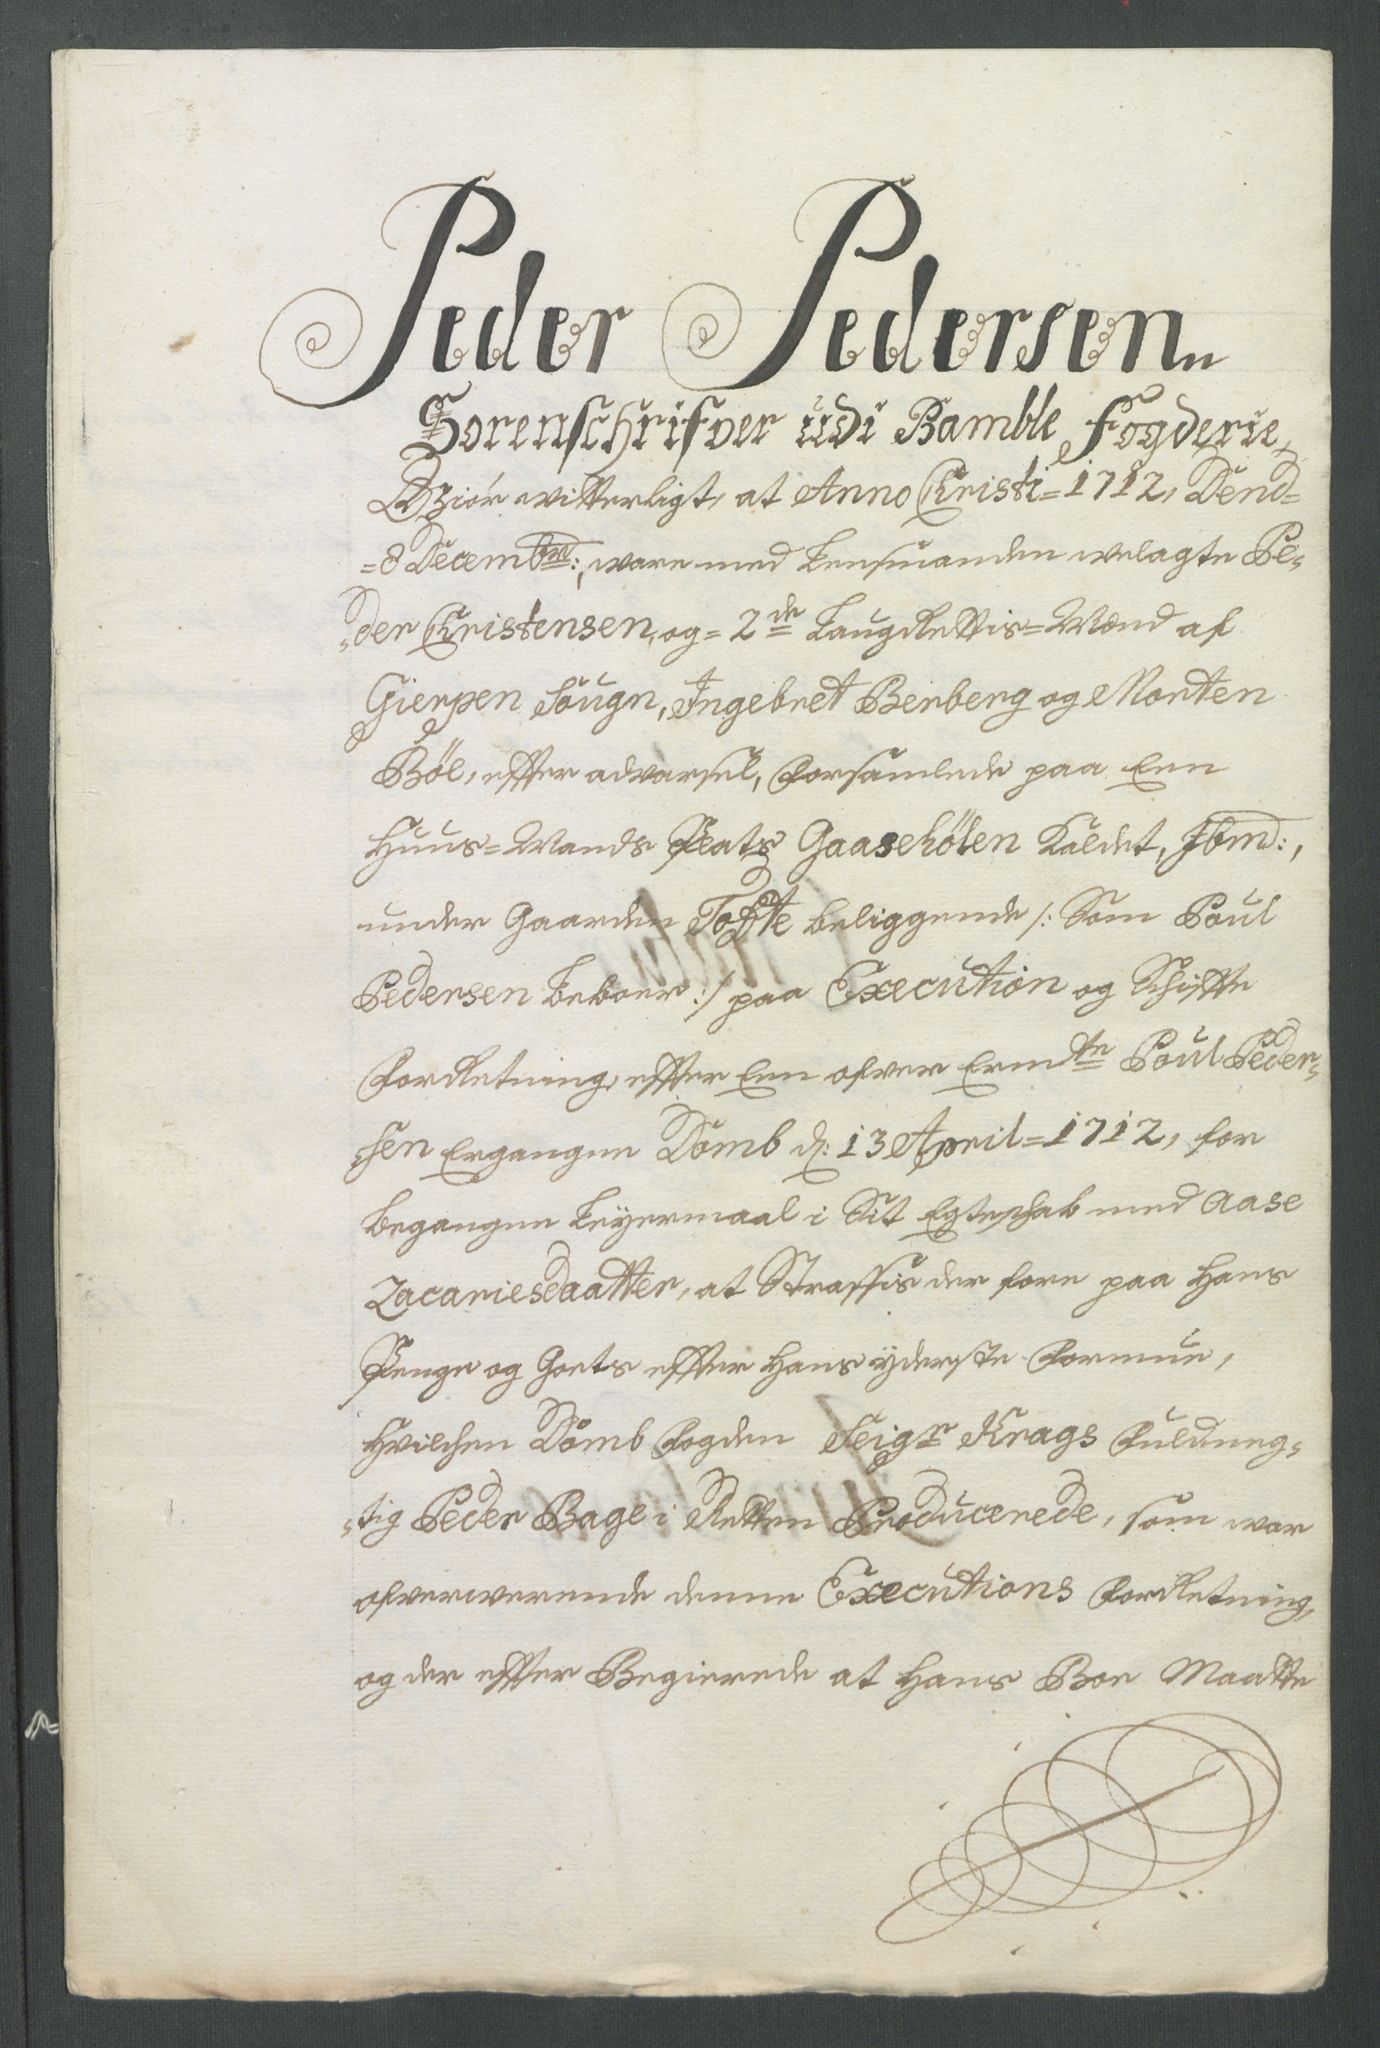 Peder Pedersen
Sorenschrifver udi Bamble Fogderie,
Giör witterligt, at Anno Christi = 1712, Dend=
=8 Decembr:, ware med Lensmanden welagte Pe-
der Christensen, og = 2de Laugrettis=Mænd af
Gierpen Sougn, Ingebret Berberg og Morten
Böl, effter advarsel, forsamlede paa Een
Huus=Mands Plats Gaasehölen kaldet, Ibmd:,
under Gaarden Toffte beliggende /: Som Poul
Pedersen beboer :/ paa Execution og Schiffte
forRetning, effter Een ofver Ermdte Poul Peder-
sen Ergangne Domb d: 13 April = 1712, for
begangne Leyermaal i Sit Egteschab med Aase
Zacariesdaatter, at Straffis der fore paa hans
Penge og Goets effter hans yderste formue,
hvilchen Domb fogden Seigr Krags fuldmeg-
tig Peder Bage i Retten Producerede, som war
ofverwerende denne Executions forRetning,
og der effter Begierede at hans Boe Maatte